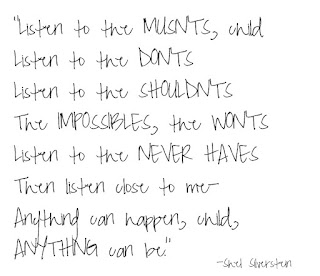 "Listen to the MUSNTS, child
Listen to the DONTS
Listen to the SHOULDNTS
The IMPOSSIBLES, the WONTS
Listen to the NEVER HAVES
Then listen close to me-
Anything can happen, child,
ANYTHING can be."
-Shel Silverstein